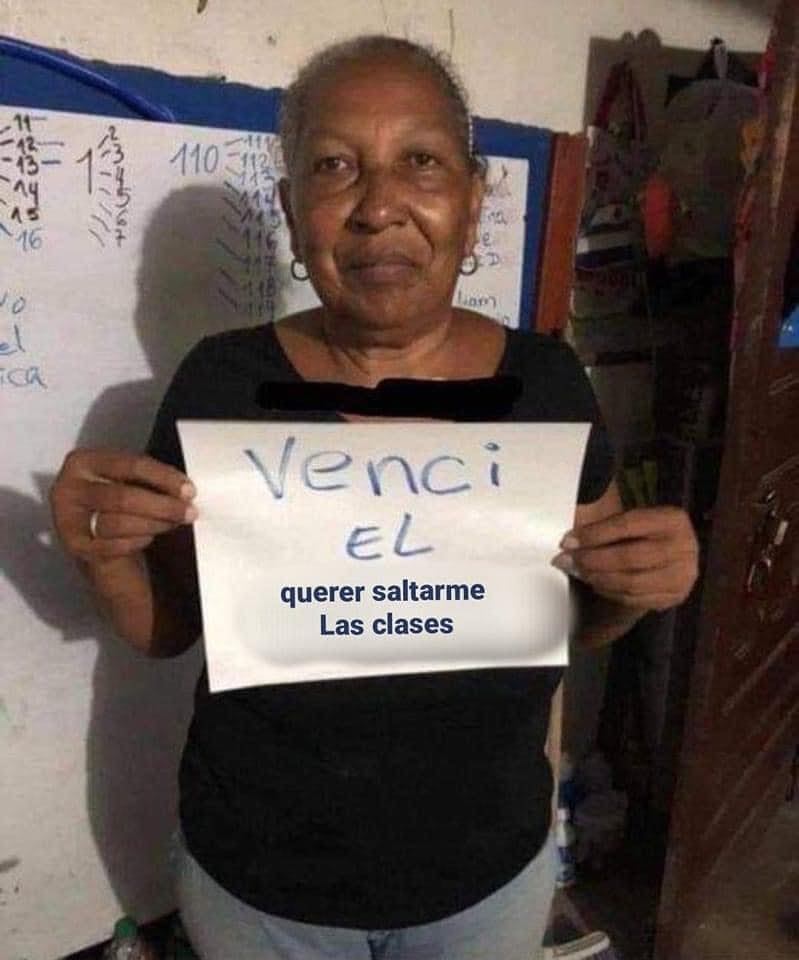 11
12
13
14
15
16
1
2
3
4
5
6
7
110
111
112
113
114
115
116
117
118
119
ica
Venci
EL
querer saltarme
Las clases